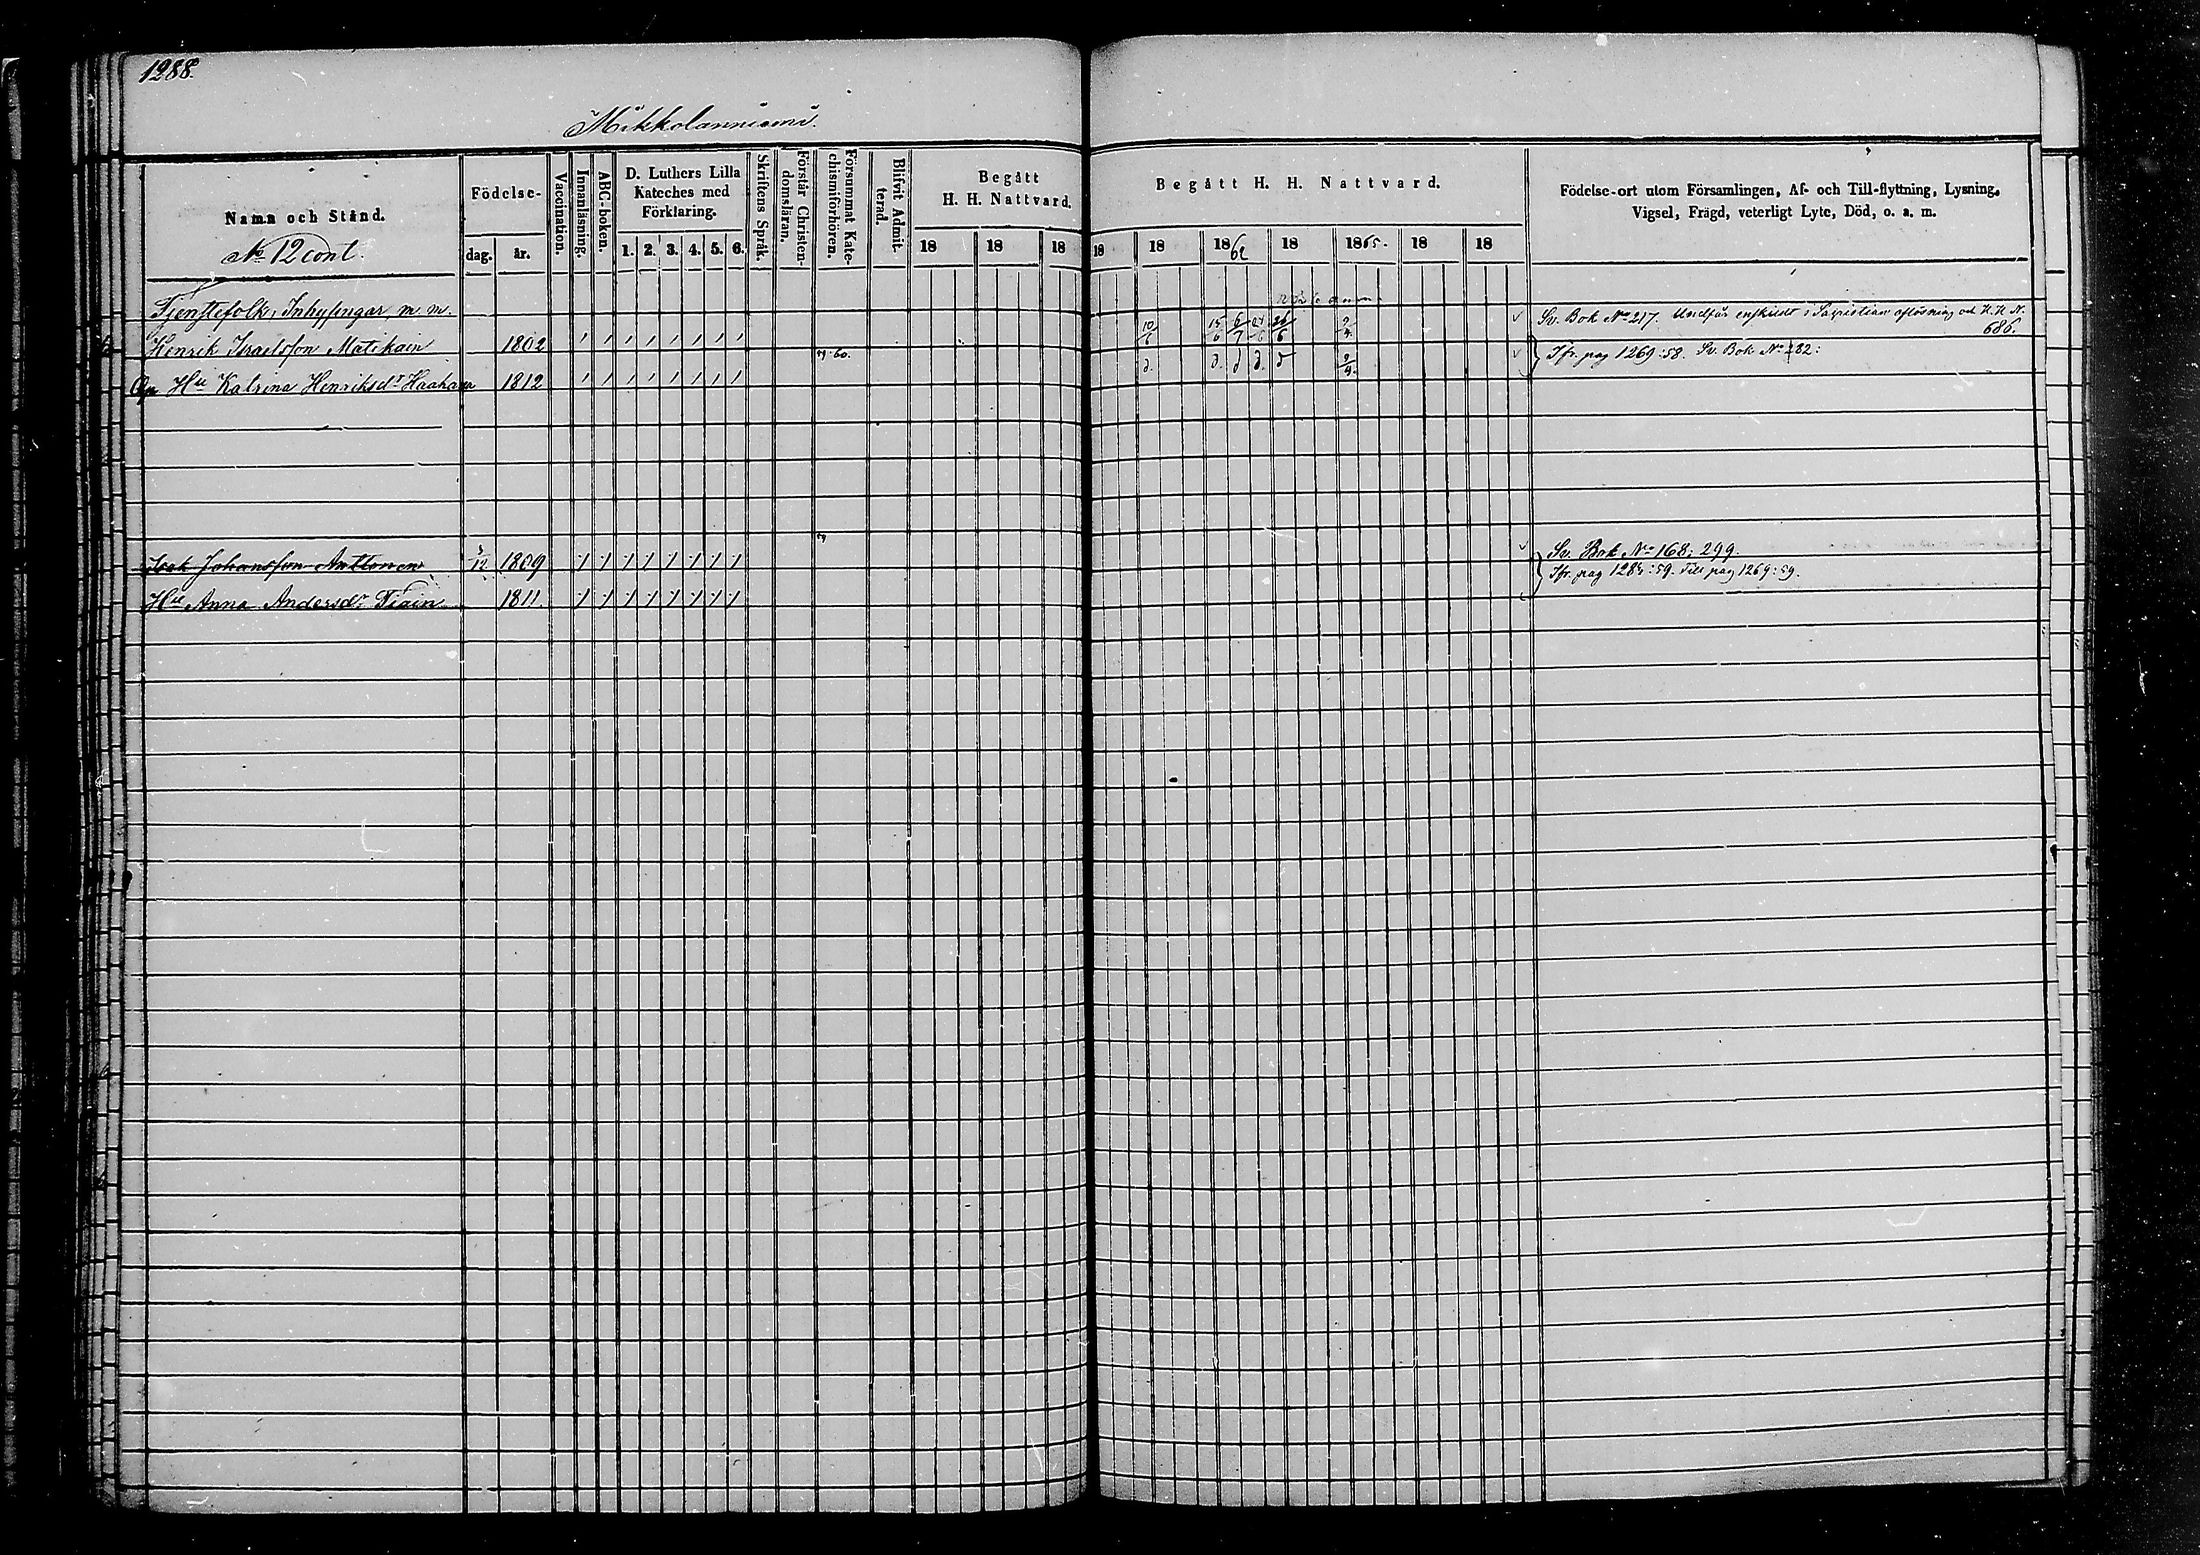 1288.
Mikkolanniemi.
Namn och Stånd.
Födelse-
dag.
år.
Vaccination.
Innanläsning.
ABC-boken.
D. Luthers Lilla
Kateches med
Förklaring.
1. 2. 3. 4. 5. 6.
Skriftens Språk.
Förstår Christen-
domsläran.
Försummat Kate-
chismiförhören.
Blifvit Admit-
terad.
Begått
H. H. Nattvard.
18 18 18
Begått H. H. Nattvard.
18 18 1862 18 1865. 18 18
Födelse-ort utom Församlingen, Af- och Till-flyttning, Lysning,
Vigsel, Frägd, veterligt Lyte, Död, o. a. m.
No 12 cont.
Tjenstefolk, Inhysingar, m. m.
Henrik Israelsson Matikain 1802 Sv. Bok No 217. Undfår enskildt i Sakristian aflösning och H. H. N.
686.
Hu Katrina Henriksdr 1812 59. 60. Jfr. pag 1269:58. Sv. Bok No 282:
Isak Johansson Anttonen 3/12 1809 59 Sv. Bok No 168; 299.
Hu Anna Andersdr Tiain 1811. Jfr. pag 1285:59. Till pag 1269:59.